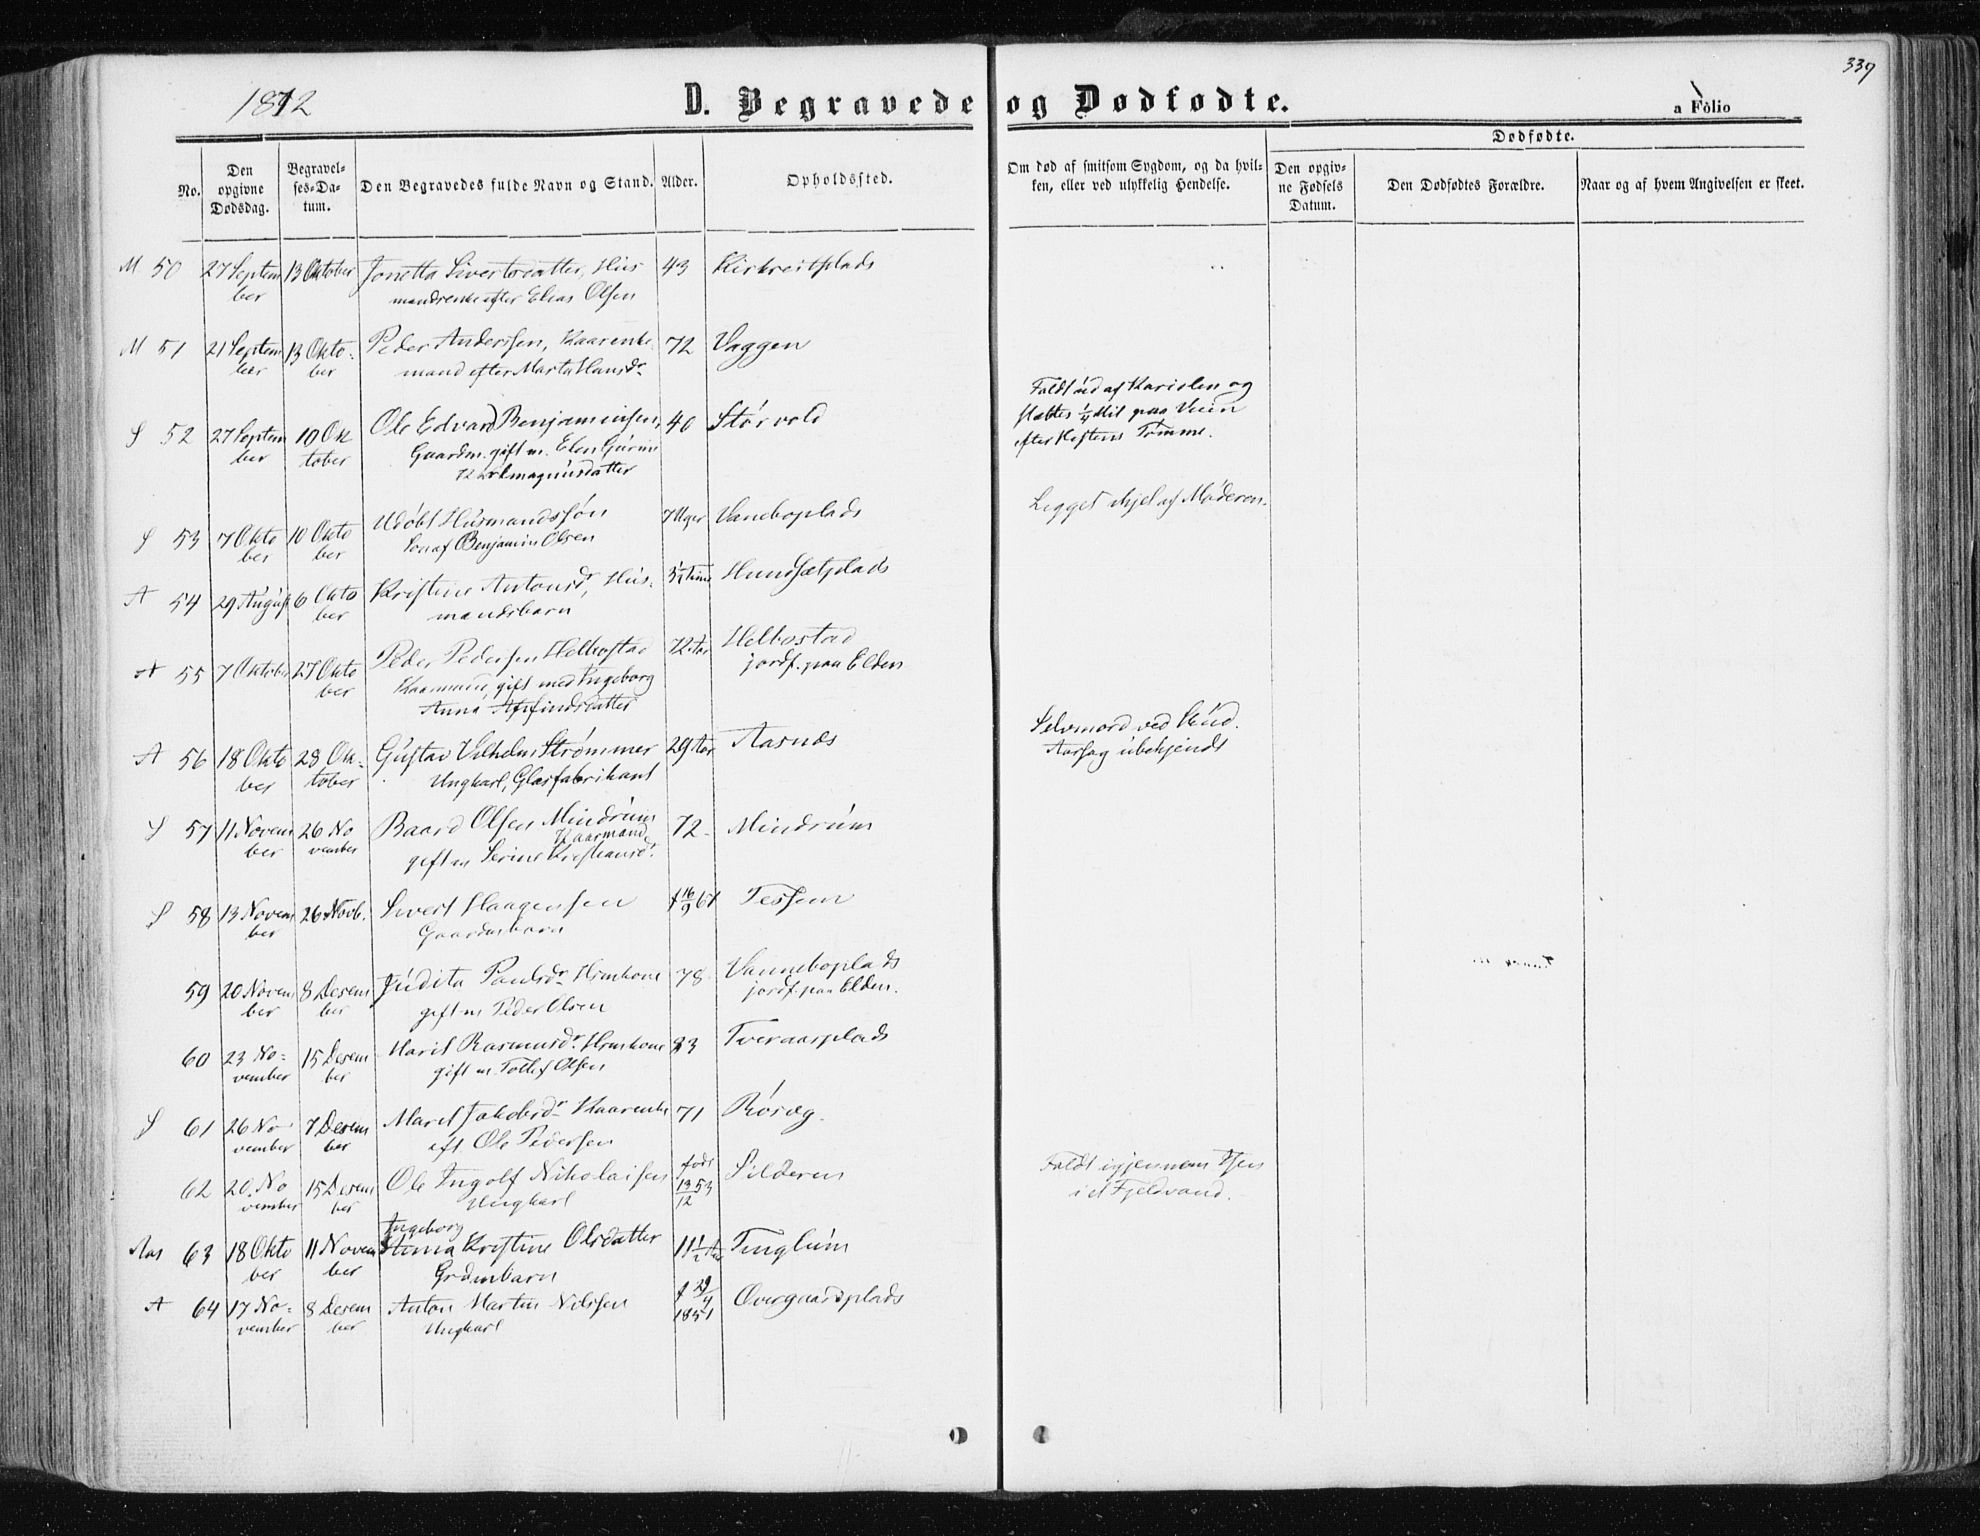 339
1872
D. Begravede og Dødfødte.
a Folio
No.
Den opgivne Dødsdag.
Begravelses-Datum.
Den Begravedes fulde Navn og Stand.
Alder.
Opholdssted.
Om død af smitsom Sygdom, og da hvilken, eller ved ulykkelig Hendelse.
Dødfødte.
Den opgivne Fødsels Datum.
Den Dødfødtes Forældre.
Naar og af hvem Angivelsen er skeet.
M 50 27 September 13 Oktober Jonetta Sivertsdatter, Hus 43 Kirkreitplads
mandsenke efter Elias Olsen
M 51 21 September 13 Oktober Peder Anderssen, Kaarenke 72 Vaggen
mand efter Marta Hansdr
S 52 27 Septem ber 10 Oktober Ole Edvard Benjaminsen, 40 Størvold
Gaardm. gift m. Elen Gurine
Karlmagnusdatter
Faldt ud af Kariolen og
slæbtes 1/4 Mil paa Veien
efter Hestens Tømme.
S 53 7 Oktober 10 Oktober Udøbt Husmandssøn 7 Uger Vaneboplads
Son af Benjamin Olsen
Legget ihjel af Moderen.
A 54 29 August 6 Oktober Kristine Antonsdr, Hus- Hundsetplads
mandsbarn
A 55 7 Oktober 27 Oktober Peder Pedersen Helbostad 72 Aar Helbostad
Kaarmand, gift med Ingeborg jordf. paa Elden
Anna Arfindsdatter
A 56 18 Oktober 28 Oktober Gustav Vilhelm Strømmer 29 Aar Aasnæs
Ungkarl, Glasfabrikant
Selvmord ved Skud.
Aarsag ubekjendt
S 57 11 November 26 November Baard Olsen Mindrum 72 Mindrum
Kaarmand
gift m Serine Kristiansdr.
S 58 13 November 26 Novb. Sivert Haagensen f 16/9 61 Tessem
Gaardmbarn
59 20 November 8 Desember Judita Paulsdr Hmkone 78 Vanneboplads
gift m Peder Olsen jordf. paa Elden.
60 23 November 15 Desember Marit Rasmusdr. Hmkone 83 Tveraasplads
gift m. Tollef Olsen
S 61 26 November 7 Desember Marit Jakobsdr Kaarenke 71 Røsæg.
eft Ole Pedersen
62 20 November 15 Desember Ole Ingolf Nikolaisen født 13/12 53 Silderen
Ungkarl
Faldt igjennem Isen
i et Fjeldvand.
Aas 63 18 Oktober 11 November Ingeborg
Kristine Olsdatter 11 1/2 Aar Tinglum
Grdmbarn
A 64 17 November 8 Desember Anton Martin Nilssen f 29/4 1851 Overgaardsplads
Ungkarl